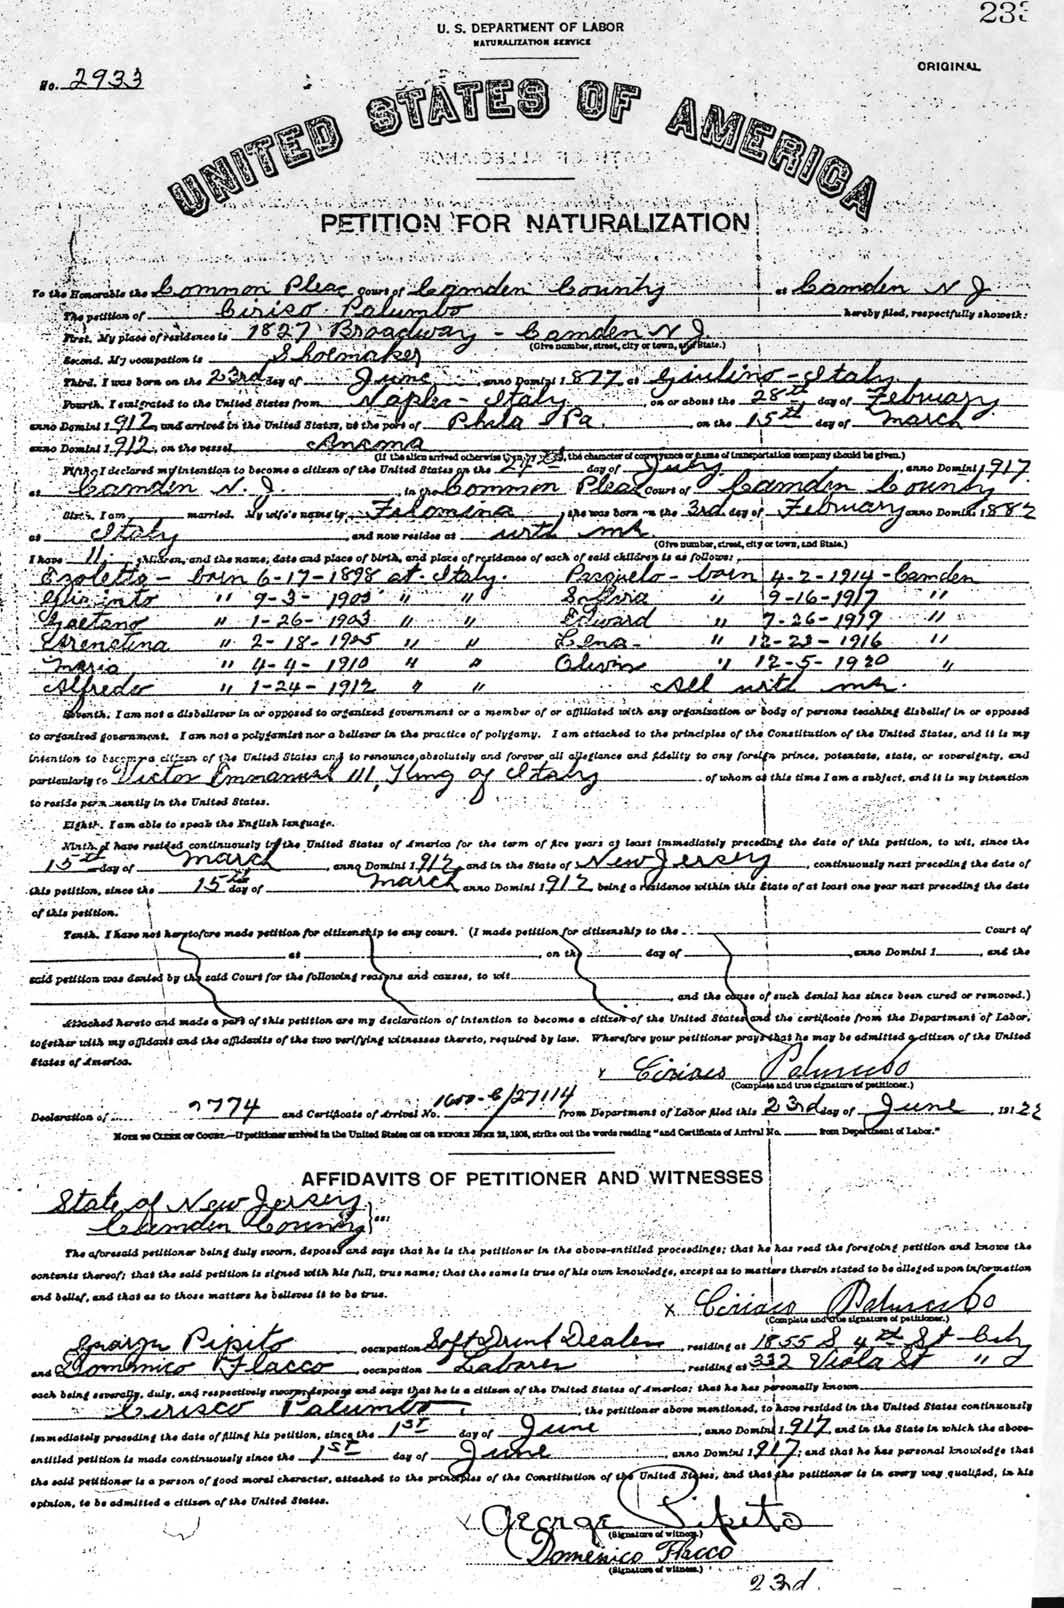 233
U. S. DEPARTMENT OF LABOR
NATURALIZATION SERVICE
ORIGINAL
No. 2933
UNITED STATES OF AMERICA
PETITION FOR NATURALIZATION
To the Honorable the Common Pleas Court of Camden County at Camden N J
The petition of Cirisco Palumbo hereby filed, respectfully showeth:
First. My place of residence is 1827 Broadway - Camden N. J.
(Give number, street, city or town, and State.)
Second. My occupation is Shoemaker
Third. I was born on the 23rd day of June, anno Domini 1877 at Giulino - Italy
Fourth. I emigrated to the United States from Naples - Italy on or about the 28th day of February
anno Domini 1912, and arrived in the United States, at the port of Phila Pa. on the 15th day of March
anno Domini 1912, on the vessel Ancona
(If the alien arrived otherwise than by vessel, the character of conveyance or name of transportation company should be given.)
Fifth. I declared my intention to become a citizen of the United States on the day of July, anno Domini 1917
at Camden N. J., in the Common Pleas Court of Camden County
Sixth. I am married. My wife's name is Filomena; she was born on the 3rd day of February anno Domini 1882
at Italy and now resides at with me
(Give number, street, city or town, and State.)
I have 11 children, and the name, date and place of birth, and place of residence of each of said children is as follows:
born 6-17-1898 at Italy. born 4-2-1914 - Camden
" 9-3-1903 " " " 9-16-1917 "
Gaetano " 1-26-1903 " " Edward " 7-26-1919 "
" 2-18-1905 " " Lena " 12-23-1916 "
Maria " 4-4-1910 " " " 12-5-1920 "
Alfredo " 1-24-1912 " " All with me.
Seventh. I am not a disbeliever in or opposed to organized government or a member of or affiliated with any organization or body of persons teaching disbelief in or opposed
to organized government. I am not a polygamist nor a believer in the practice of polygamy. I am attached to the principles of the Constitution of the United States, and it is my
intention to become a citizen of the United States and to renounce absolutely and forever all allegiance and fidelity to any foreign prince, potentate, state, or sovereignty, and
particularly to Victor Emmanuel III, King of Italy of whom at this time I am a subject, and it is my intention
to reside permanently in the United States.
Eighth. I am able to speak the English language.
Ninth. I have resided continuously in the United States of America for the term of five years at least immediately preceding the date of this petition, to wit, since the
15th day of March, anno Domini 1912 and in the State of New Jersey, continuously next preceding the date of
this petition, since the 15th day of March anno Domini 1912, being a residence within this State of at least one year next preceding the date
of this petition.
Tenth. I have not heretofore made petition for citizenship to any court. (I made petition for citizenship to the Court of
at , on the day of , anno Domini 1 , and the
said petition was denied by the said Court for the following reasons and causes, to wit
, and the cause of such denial has since been cured or removed.)
Attached hereto and made a part of this petition are my declaration of intention to become a citizen of the United States and the certificate from the Department of Labor,
together with my affidavit and the affidavits of the two verifying witnesses thereto, required by law. Wherefore your petitioner prays that he may be admitted a citizen of the United
States of America.
x Ciriaco Palumbo
(Complete and true signature of petitioner.)
Declaration of 2774 and Certificate of Arrival No. from Department of Labor filed this 23rd day of June, 1922
NOTE TO CLERK OF COURT.—If petitioner arrived in the United States ON OR BEFORE JUNE 29, 1906, strike out the words reading "and Certificate of Arrival No. from Department of Labor."
AFFIDAVITS OF PETITIONER AND WITNESSES
State of New Jersey
Camden County } ss:
The aforesaid petitioner being duly sworn, deposes and says that he is the petitioner in the above-entitled proceedings; that he has read the foregoing petition and knows the
contents thereof; that the said petition is signed with his full, true name; that the same is true of his own knowledge, except as to matters therein stated to be alleged upon information
and belief, and that as to those matters he believes it to be true.
x Ciriaco Palumbo
(Complete and true signature of petitioner.)
George Pipito, occupation Soft Drink Dealer, residing at 1855 S 4th St - City
and Domenico Flacco, occupation Laborer, residing at 332 Viola St "
each being severally, duly, and respectively sworn, deposes and says that he is a citizen of the United States of America; that he has personally known
Cirisco Palumbo, the petitioner above mentioned, to have resided in the United States continuously
immediately preceding the date of filing his petition, since the 1st day of June, anno Domini 1917, and in the State in which the above-
entitled petition is made continuously since the 1st day of June, anno Domini 1917; and that he has personal knowledge that
the said petitioner is a person of good moral character, attached to the principles of the Constitution of the United States, and that the petitioner is in every way qualified, in his
opinion, to be admitted a citizen of the United States.
George Pipito
(Signature of witness.)
Domenico Flacco
(Signature of witness.)
23rd.